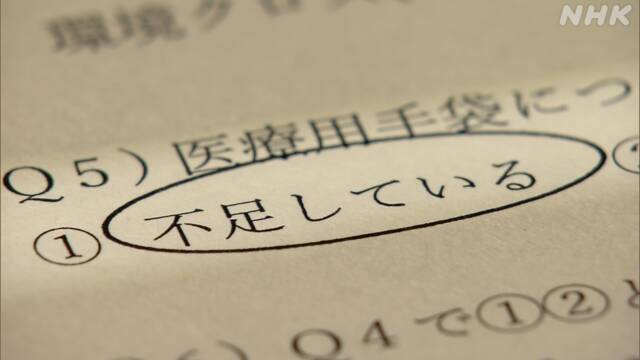 NHK
環境クロス
Q5）医療用手袋につ
① 不足している
Q4で①②と